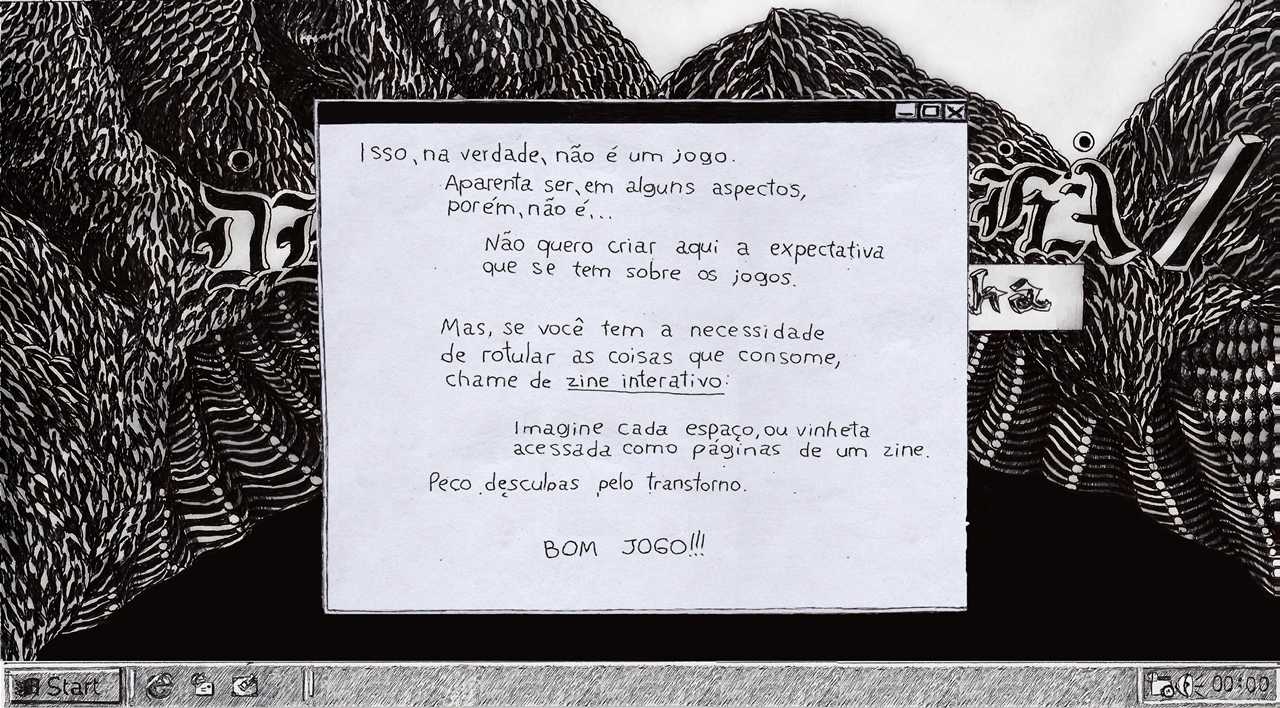 Isso, na verdade, não é um jogo.
Aparenta ser, em alguns aspectos,
porém, não é...
Não quero criar aqui a expectativa
que se tem sobre os jogos.
Mas, se você tem a necessidade
de rotular as coisas que consome,
chame de zine interativo:
Imagine cada espaço, ou vinheta
acessada como páginas de um zine.
Peço desculpas pelo transtorno.
BOM JOGO!!!
Start
00:00